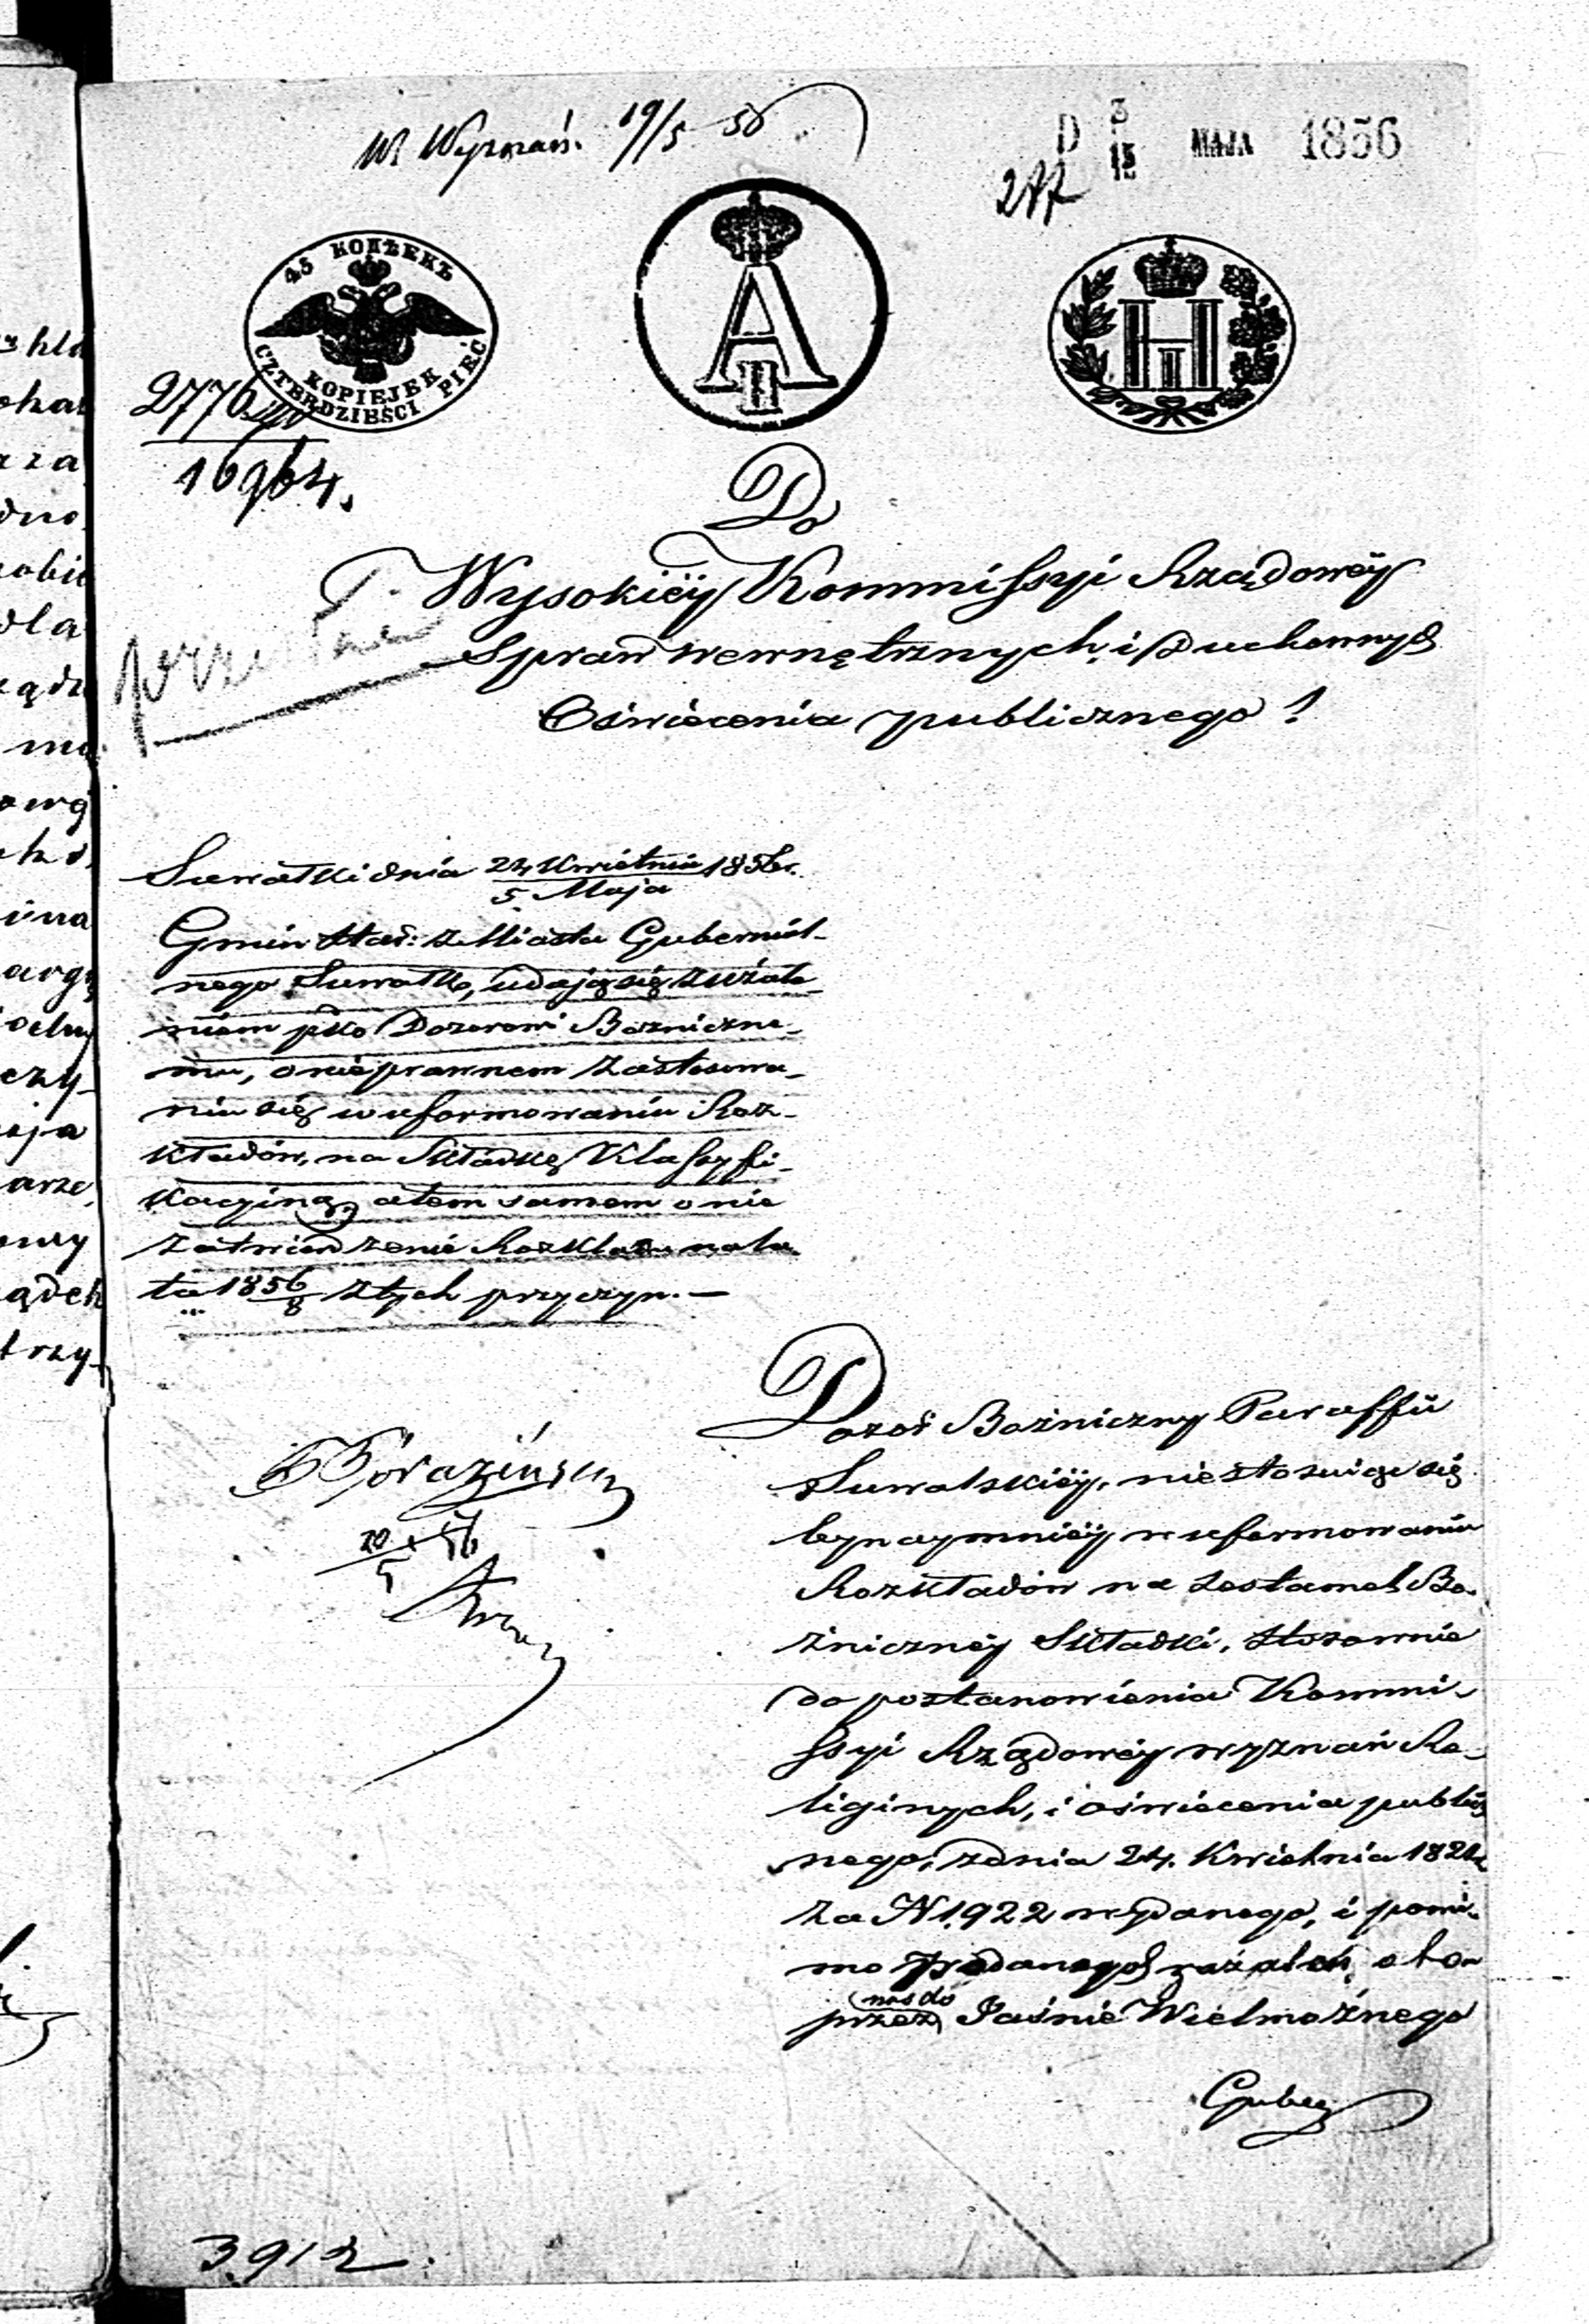 W. Wyznań. 19/5 56
D 3/15 MAJA 1856
277
45 КОПѢЕКЪ
CZTERDZIEŚCI PIĘĆ
KOPIEJEK
A II
H II
2776
16964.
Do
Wysokiéy Kommissyi Rządowéy
Spraw wewnętrznych i Duchownych
Oświecenia publicznego!
Suwałki dnia 24 Kwietnia / 5 Maja 1856 r.
Gmin Star: z Miasta Gubernial-
nego Suwałk, udają się z użale-
niem pko Dozorowi Bożniczne-
mu, o nieprawnem zastosowa-
niu się w uformowaniu Roz-
kładów, na Składkę Klassyfi-
kacyiną, a tem samem o nie
zatwierdzenie Rozkładu na la-
ta 1856/8 z tych przyczyn. —
Dozór Bożniczny Paraffii
Suwalskiéy, nie stosuiąc się
bynaymniéy w uformowaniu
Rozkładów na zesłanek Bo-
żnicznéy Składki, stosownie
do postanowienia Kommi-
ssyi Rządowéy wyznań Re-
liginych, i oświecenia publicz
nego, z dnia 24. Kwietnia 182
za N 1922 wydanego, i pomi-
mo podanego zażaleń, o to
przez nas do Jaśnie Wielmożnego
Guber
20/5 56
3912
hla
za
dno
obie
dla
ma
ina
czy-
arze
ądek
trzy-